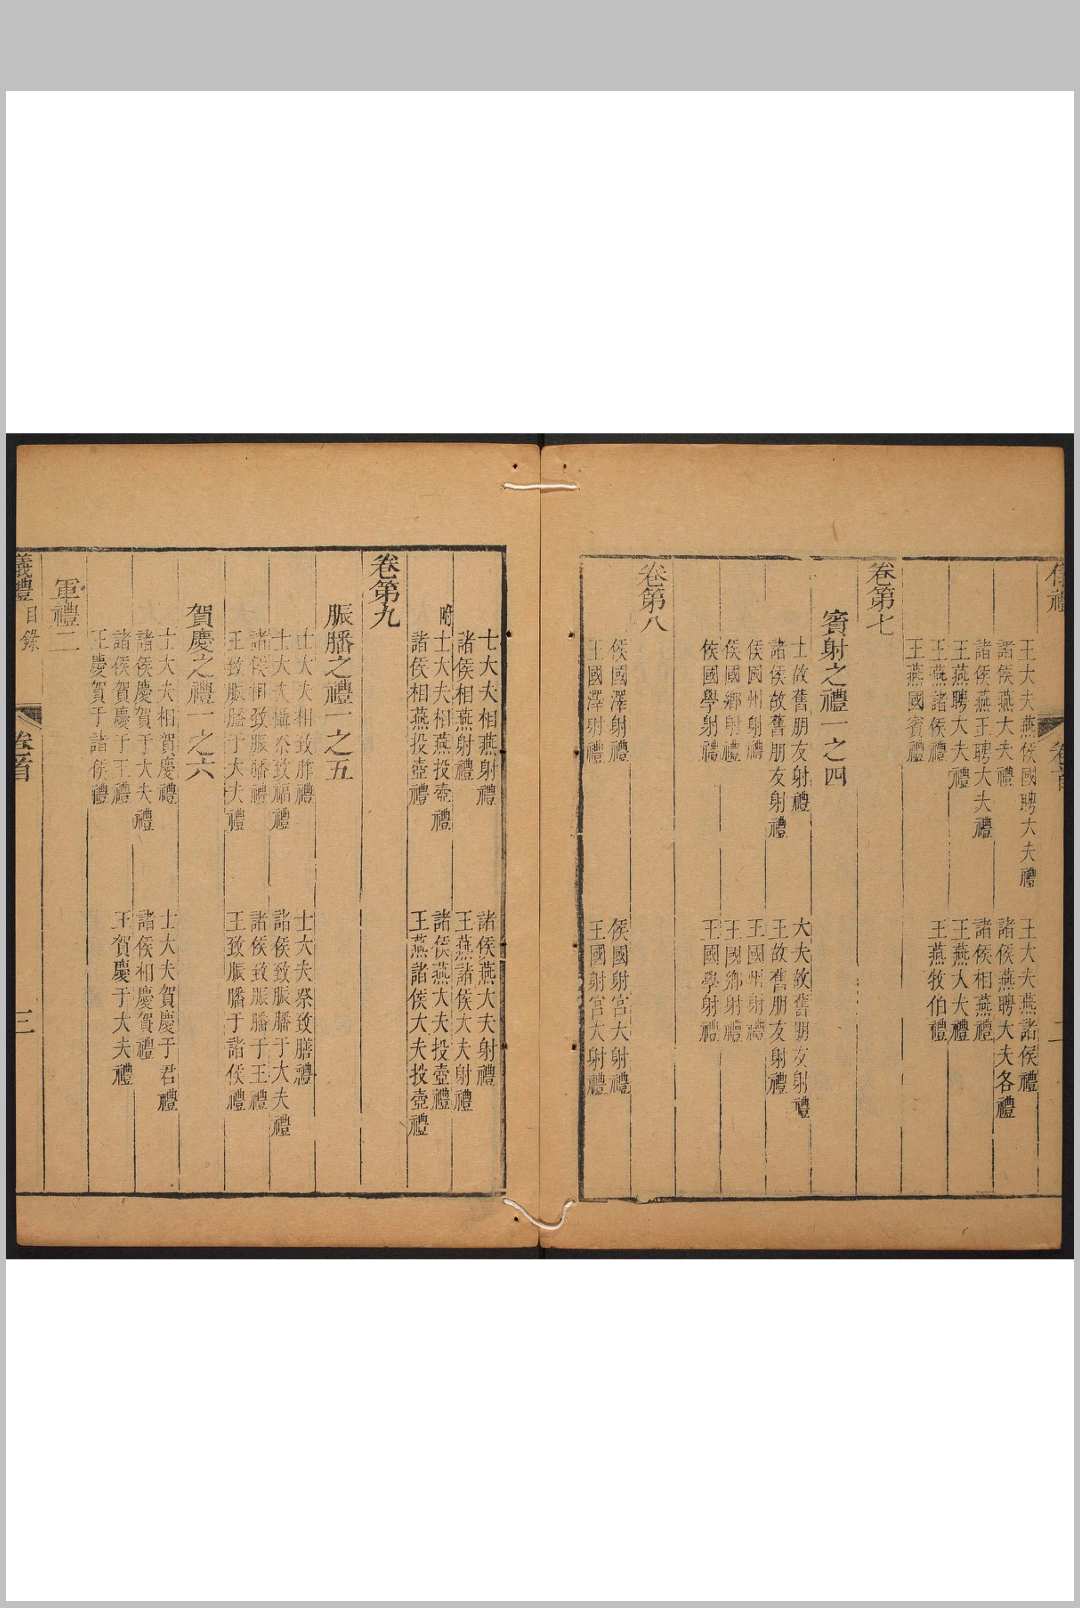 王大夫燕侯國聘大夫禮　王大夫燕諸侯禮
諸侯燕大夫禮　諸侯燕聘大夫各禮
諸侯燕王聘大夫禮　諸侯相燕禮
王燕聘大夫禮　王燕大夫禮
王燕諸侯禮　王燕牧伯禮
王燕國賓禮
卷第七
賓射之禮一之四
士故舊朋友射禮　大夫故舊朋友射禮
諸侯故舊朋友射禮　王故舊朋友射禮
侯國州射禮　王國州射禮
侯國鄉射禮　王國鄉射禮
侯國學射禮　王國學射禮
卷第八
侯國澤射禮　侯國射宮大射禮
王國澤射禮　王國射宮大射禮
士大夫相燕射禮　諸侯燕大夫射禮
諸侯相燕射禮　王燕諸侯大夫射禮
附士大夫相燕投壺禮　諸侯燕大夫投壺禮
諸侯相燕投壺禮　王燕諸侯大夫投壺禮
卷第九
脤膰之禮一之五
士大夫相致胙禮　士大夫祭致膳禮
士大夫攝祭致福禮　諸侯致脤膰于大夫禮
諸侯相致脤膰禮　諸侯致脤膰于王禮
王致脤膰于大夫禮　王致脤膰于諸侯禮
賀慶之禮一之六
士大夫相賀慶禮　士大夫賀慶于君禮
諸侯慶賀于大夫禮　諸侯相慶賀禮
諸侯賀慶于王禮　王賀慶于大夫禮
王慶賀于諸侯禮
軍禮二
儀禮　目錄　卷首　三